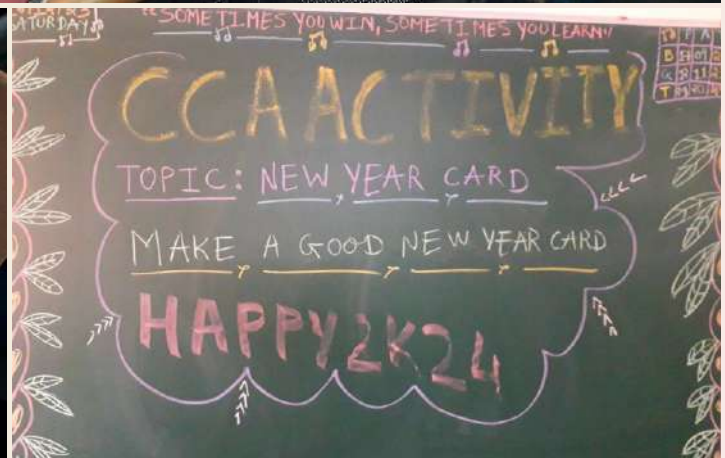 SATURDAY
"SOMETIMES YOU WIN, SOMETIMES YOU LEARN"
P A
B
G
T
CCA ACTIVITY
TOPIC: NEW YEAR CARD
MAKE A GOOD NEW YEAR CARD
HAPPY 2K24